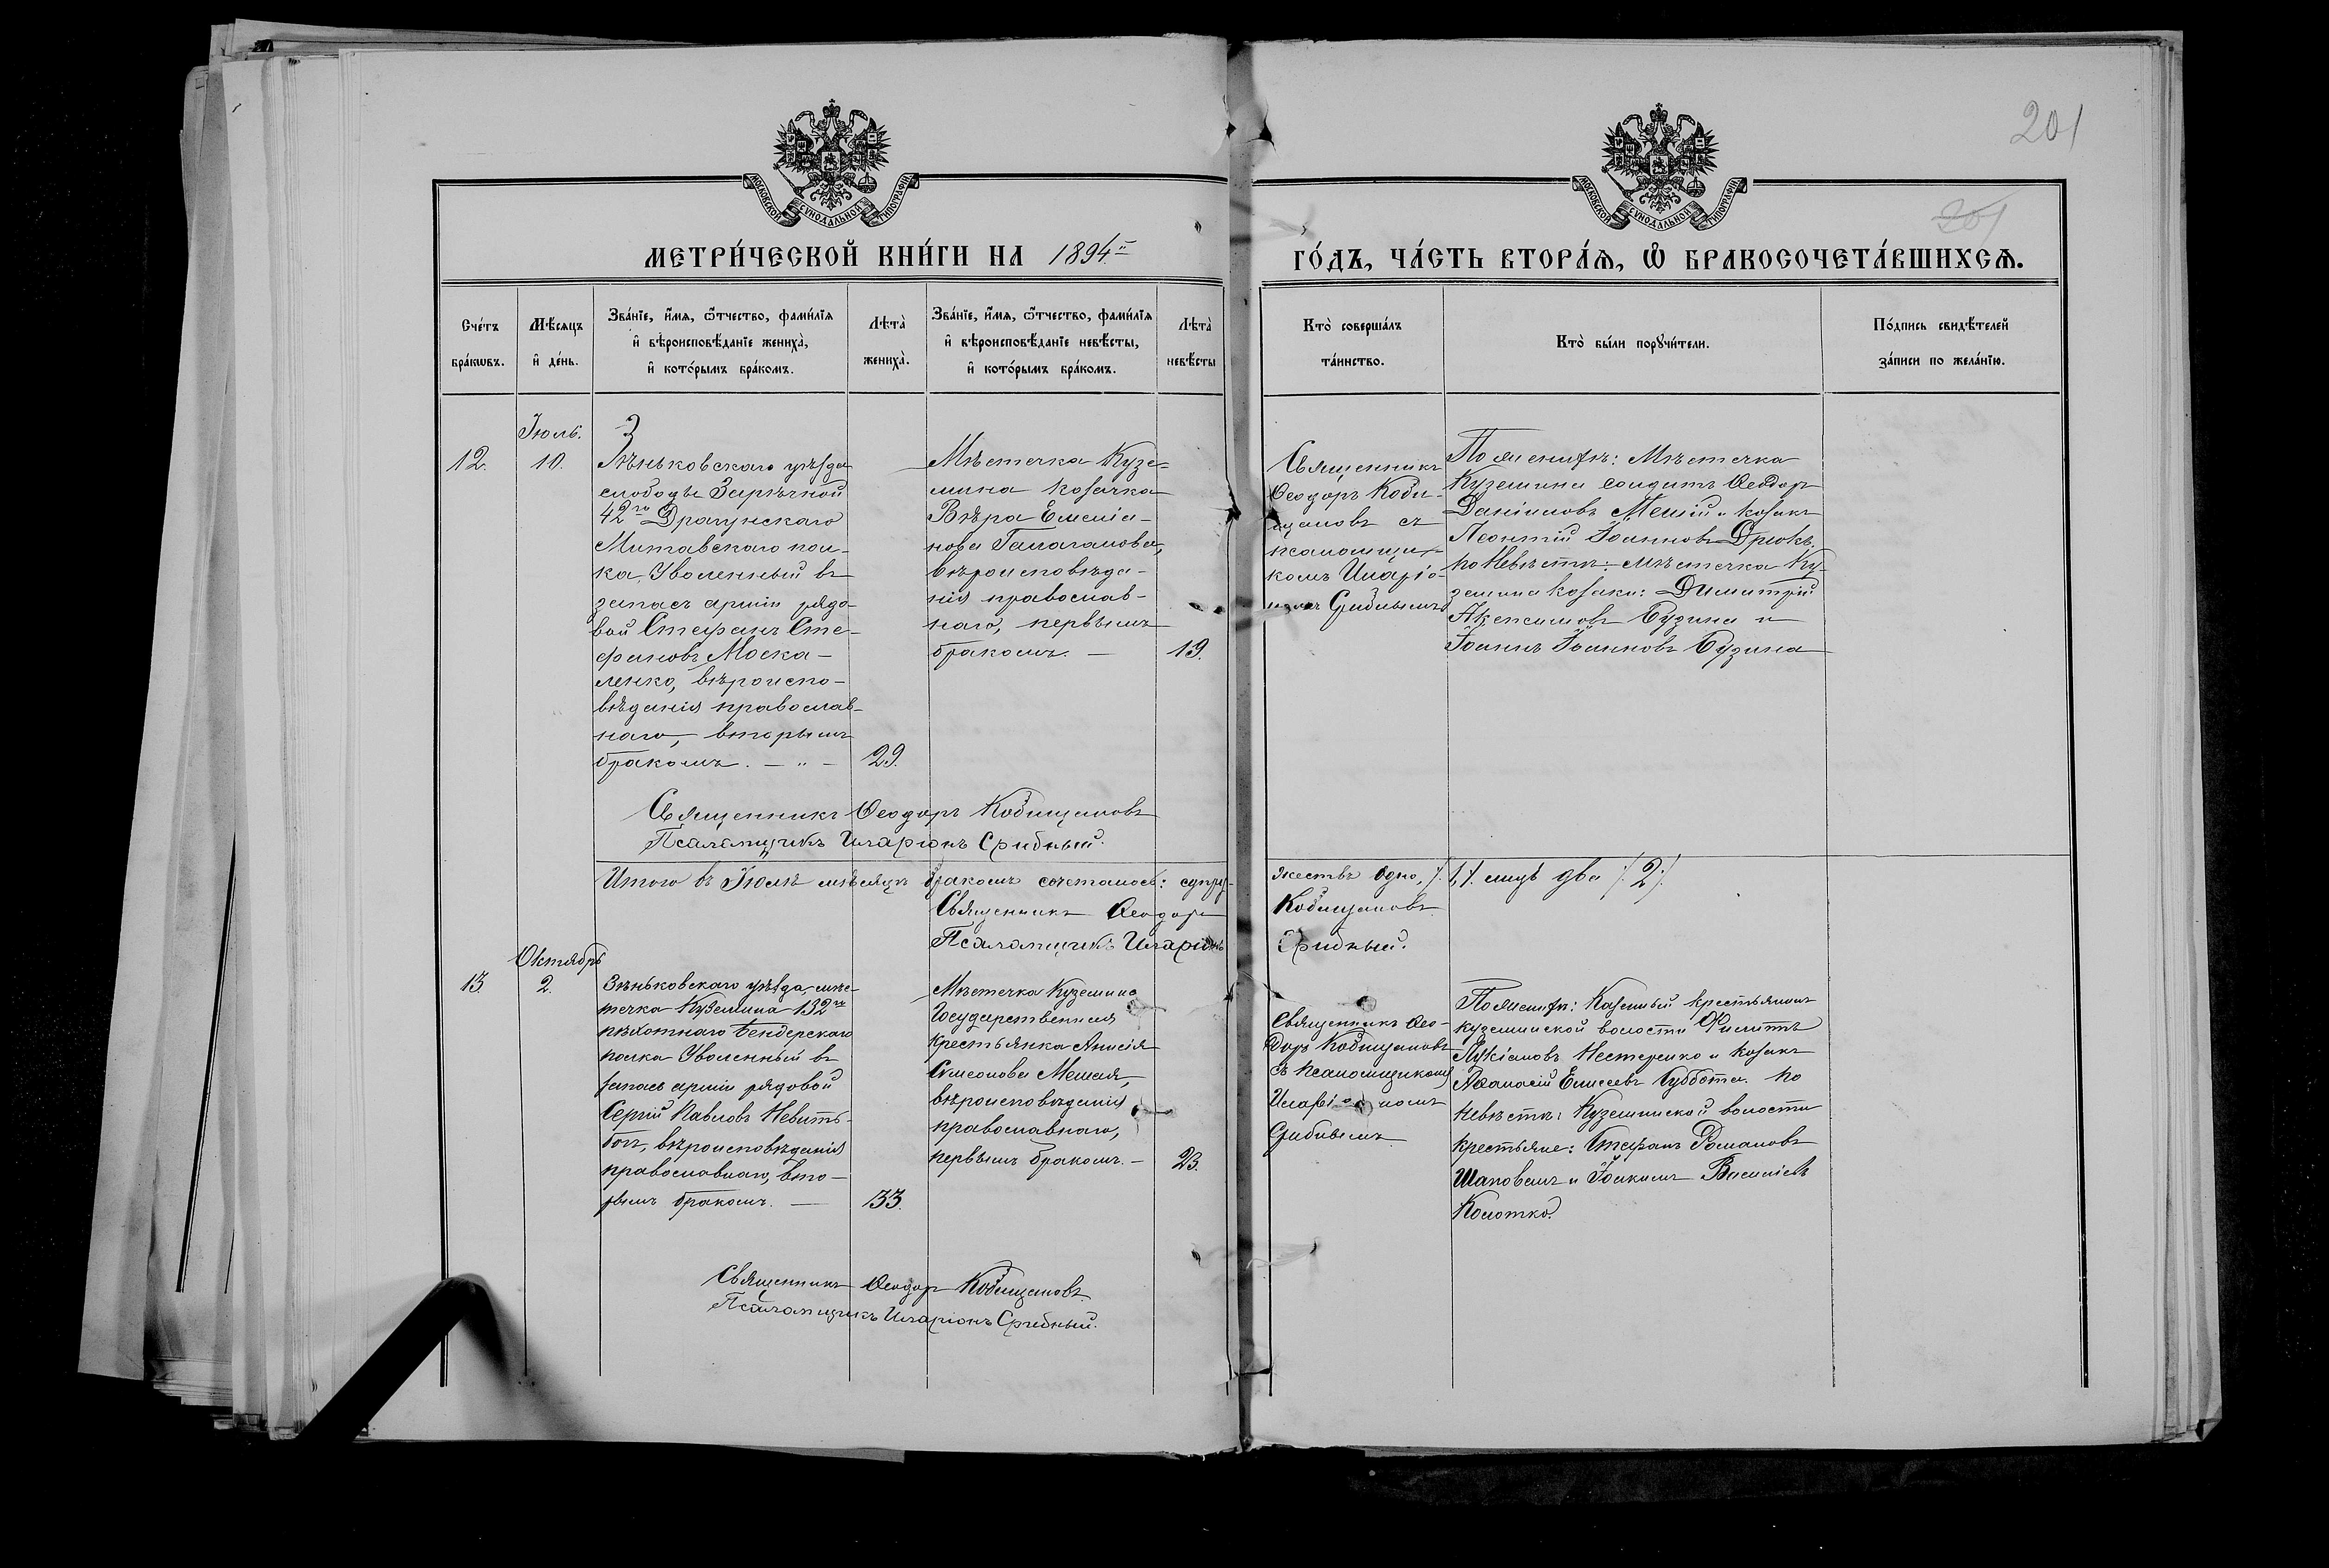 201
201
МОСКОВСКОЙ СУНОДАЛЬНОЙ ТИПОГРАФІИ
МОСКОВСКОЙ СУНОДАЛЬНОЙ ТИПОГРАФІИ
МЕТРИ́ЧЕСКОЙ КНИ́ГИ НА 1894.й
ГО́ДЪ, ЧА́СТЬ ВТОРА́Ѧ, Ѽ БРАКОСОЧЕТА́ВШИХСѦ.
Сче́тъ
бра́кѡвъ.
Мѣ́сяцъ
и҆ де́нь.
Зва́нїе, и҆́мѧ, ѻ҆́тчество, фами́лїѧ
и҆ вѣроисповѣ́данїе жениха̀,
и҆ кото́рымъ бра́комъ.
Лѣта̀
жениха̀.
Зва́нїе, и҆́мѧ, ѻ҆́тчество, фами́лїѧ
и҆ вѣроисповѣ́данїе невѣ́сты,
и҆ кото́рымъ бра́комъ.
Лѣта̀
невѣ́сты
Кто̀ соверша́лъ
та́инство.
Кто̀ бы́ли порꙋчи́тели.
По́дпись свидѣ́телей
за́писи по жела́нїю.
12.
Іюль.
10.
З
Зѣньковскаго уѣзда
слободы Зарѣчной
42го Драгунскаго
Митавскаго пол-
ка Уволенный въ
запасъ арміи рядо-
вой Стефанъ Сте-
фановъ Моска-
ленко, вѣроиспо-
вѣданія православ-
наго, вторымъ
бракомъ. — „ —
29.
Мѣстечка Кузе-
мина козачка
Вѣра Емеліа-
нова Галаганова,
вѣроисповѣда-
нія православ-
наго, первымъ
бракомъ. —
19.
Священникъ
Ѳеодоръ Коби-
щановъ съ
псаломщи-
комъ Иларіо-
номъ Срибнымъ
По женихѣ: Мѣстечка
Куземина солдатъ Ѳеодоръ
Даніиловъ Мелій и козакъ
Леонтій Іоанновъ Дрюкъ.
по Невѣстѣ: мѣстечка Ку-
земина козаки: Димитрій
Акимовъ Бузина и
Іоаннъ Іоанновъ Бузина
Священникъ Ѳеодоръ Кобищановъ
Псаломщикъ Иларіонъ Срибный.
Итого въ Іюлѣ мѣсяцѣ бракомъ сочеталось: супру-
жествъ одно, /. 1, /. лицъ два /. 2 /.
Священникъ Ѳеодоръ Кобищановъ
Псаломщикъ Иларіонъ Срибный.
13.
Октябрь
2.
Зѣньковскаго уѣзда, мѣс-
течка Куземина 132го
пѣхотнаго Бендерскаго
полка Уволенный въ
запасъ арміи рядовой
Сергій Павловъ Невить-
богъ, вѣроисповѣданія
православнаго, вто-
рымъ бракомъ. —
33.
Мѣстечка Куземина
Государственная
крестьянка Анисія
Симеонова Мелая,
вѣроисповѣданія
православнаго,
первымъ бракомъ. —
23.
Священникъ Ѳео-
доръ Кобищановъ
съ псаломщикомъ
Иларіономъ
Срибнымъ
По женихѣ: Казенный крестьянинъ
куземинской волости Филиппъ
Лукіановъ Нестеренко и козакъ
Аѳанасій Елисеевъ Суббота. По
невѣстѣ: Куземинской волости
крестьяне: Стефанъ Романовъ
Шаповалъ и Іоакимъ Василіевъ
Колотко.
Священникъ Ѳеодоръ Кобищановъ.
Псаломщикъ Иларіонъ Срибный.